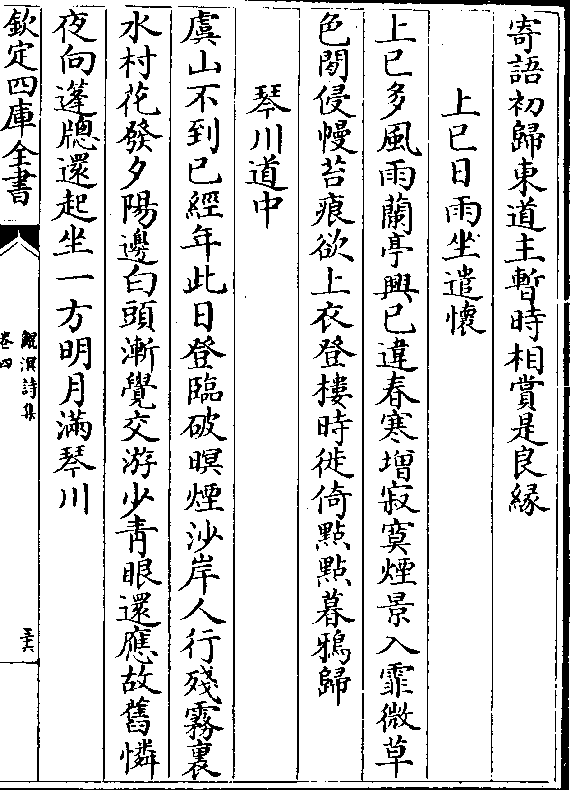 寄語初歸東道主暫時相賞是良緣
上巳日雨坐遣懷
上巳多風雨蘭亭興已違春寒增寂寞煙景入霏微草
色閒侵幔苔痕欲上衣登樓時徙倚點點暮鴉歸
琴川道中
虞山不到已經年此日登臨破暝煙沙岸人行殘霧裏
水村花發夕陽邊白頭漸覺交游少青眼還應故舊憐
夜向蓬牕還起坐一方明月滿琴川
欽定四庫全書
鯤溟詩集
卷四